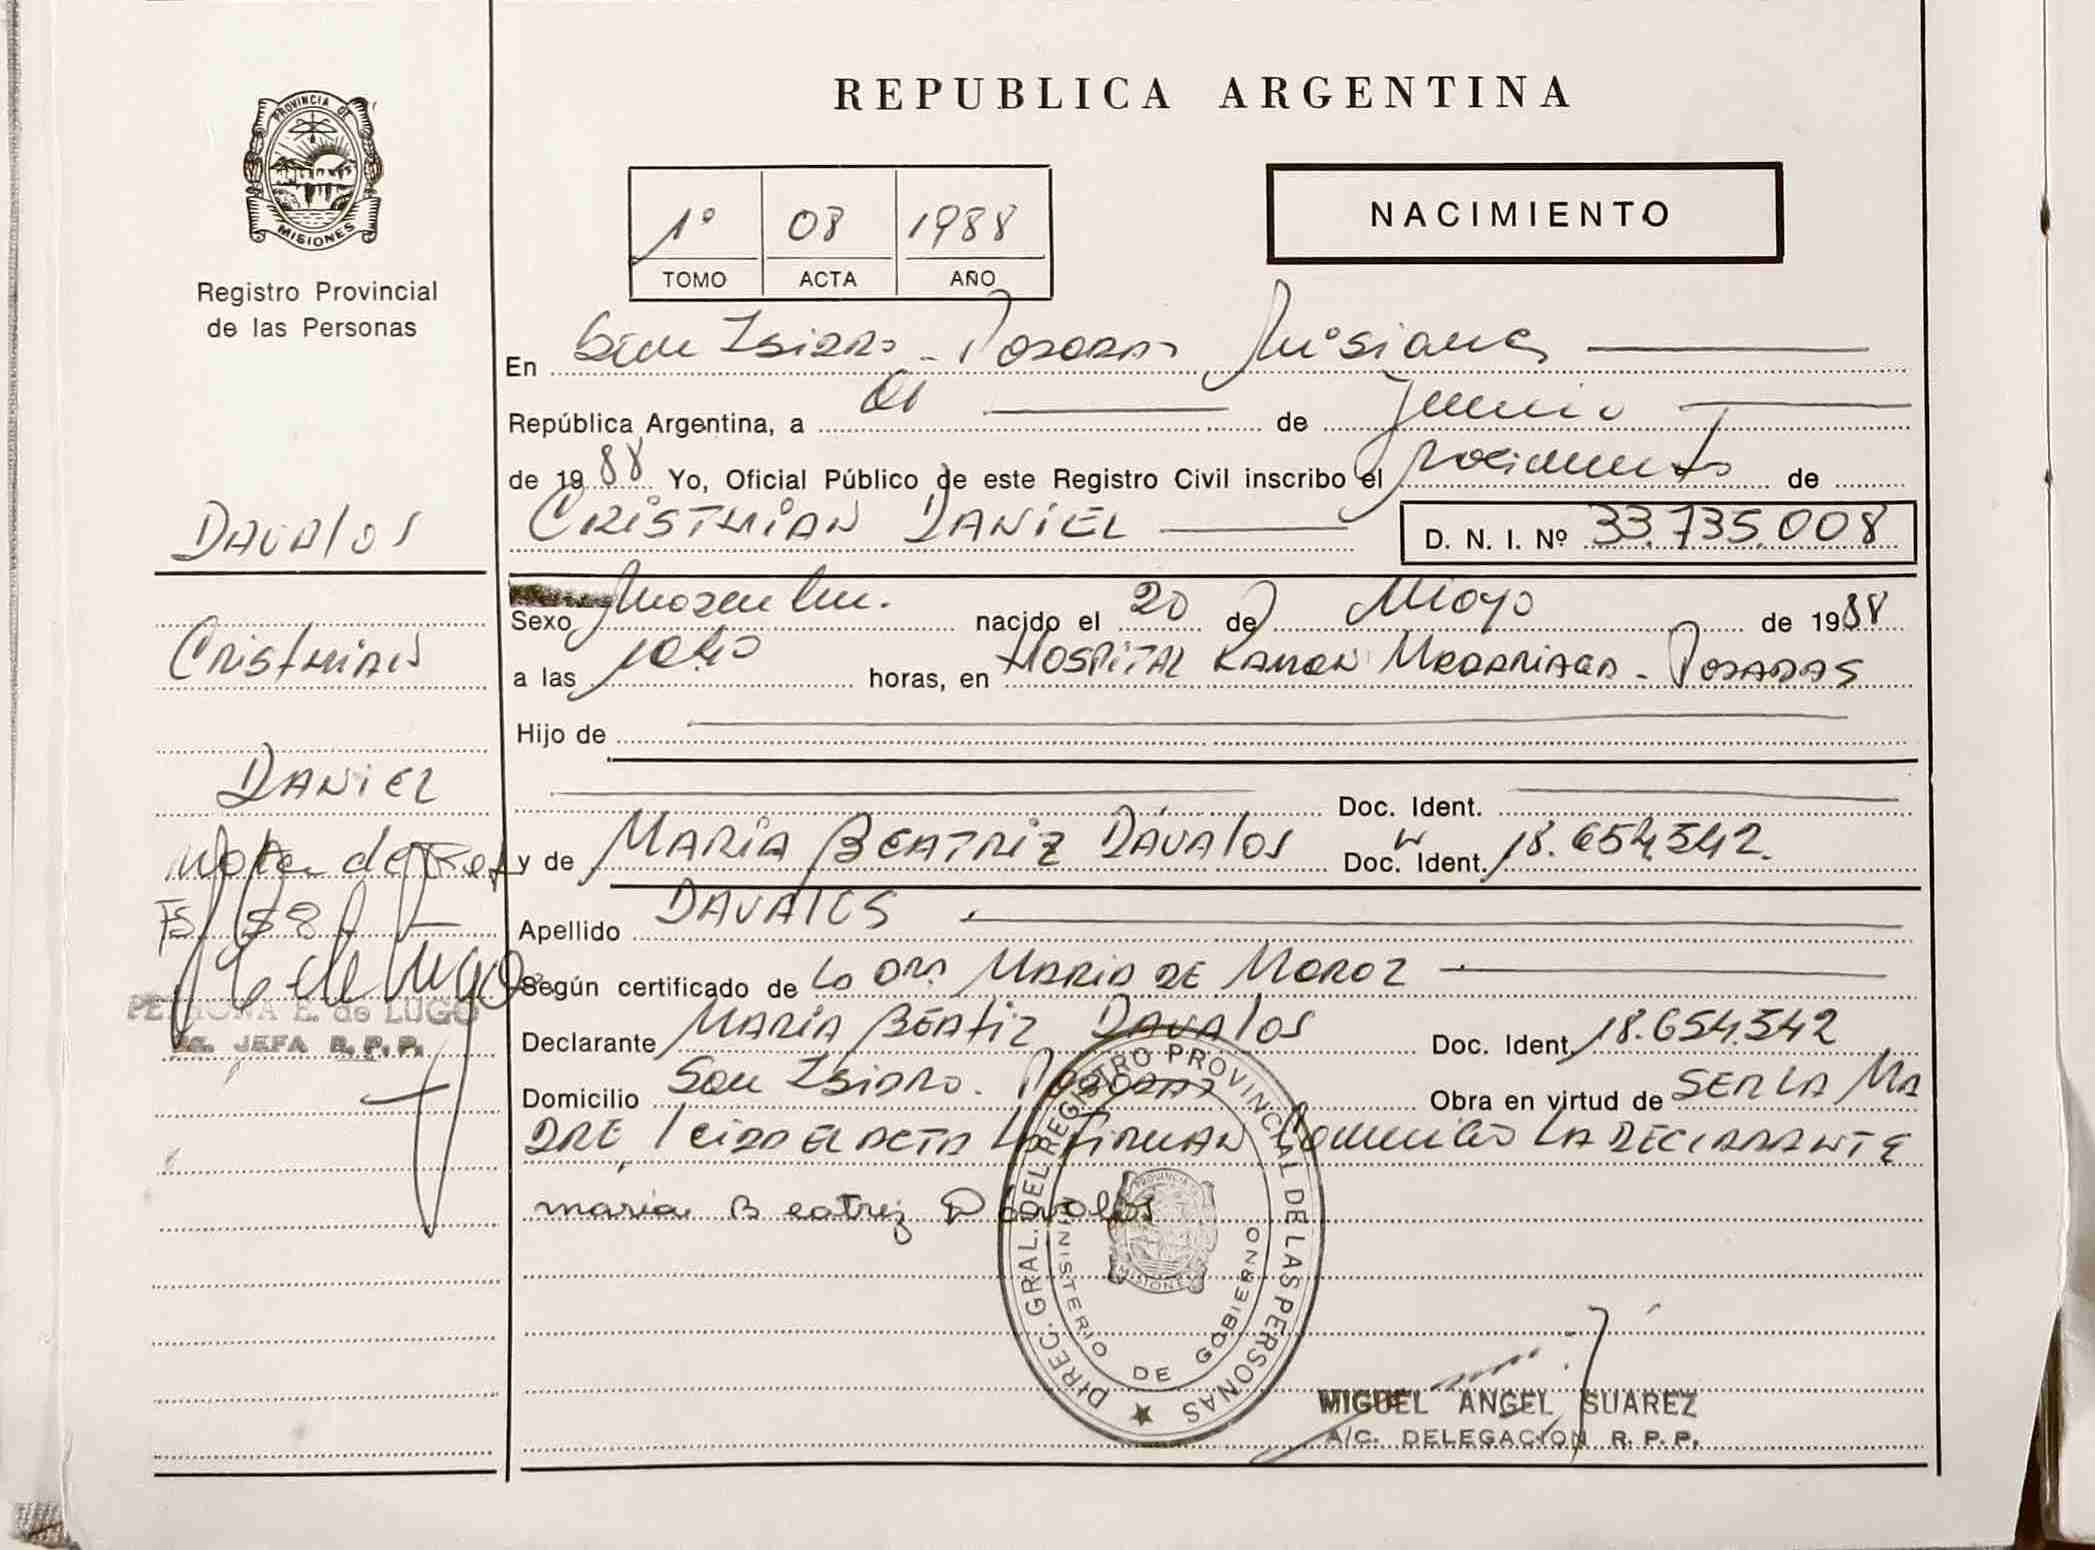 REPUBLICA ARGENTINA
PROVINCIA DE MISIONES
Registro Provincial
de las Personas
1º 08 1988
TOMO ACTA AÑO
NACIMIENTO
En San Isidro - Posadas Misiones
República Argentina, a 01 de Junio
de 1988 Yo, Oficial Público de este Registro Civil inscribo el nacimiento de
CRISTHIAN DANIEL D. N. I. Nº 33.735.008
Sexo Masculin. nacido el 20 de Mayo de 1988
a las 10:40 horas, en HOSPITAL RAMON MADARIAGA - POSADAS
Hijo de
Doc. Ident.
y de MARÍA BEATRIZ DÁVALOS Doc. Ident. 18.654.542.
Apellido DAVALOS
Según certificado de La Dra. MARIA DE MOROZ
Declarante MARÍA BEATIZ DAVALOS Doc. Ident. 18.654.542
Domicilio San Isidro. Posadas Obra en virtud de SER LA MA
DRE, leida EL ACTA LA FIRMAN Conmigo LA DECLARANTE
maria Beatriz Dávalos
DAVALOS
CRISTHIAN
DANIEL
Nota de Ref
E. de LUGO
JEFA R. P. P.
DIREC. GRAL. DEL REGISTRO PROVINCIAL DE LAS PERSONAS
MINISTERIO DE GOBIERNO
MISIONES
MIGUEL ANGEL SUAREZ
A/C. DELEGACION R. P. P.